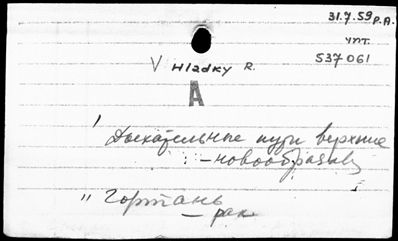 31.7.59 P.A.
чт.
537061
V Hladky R.
A
' Дыхательные пути верхние
: - новообразов
" Гортань
- рак